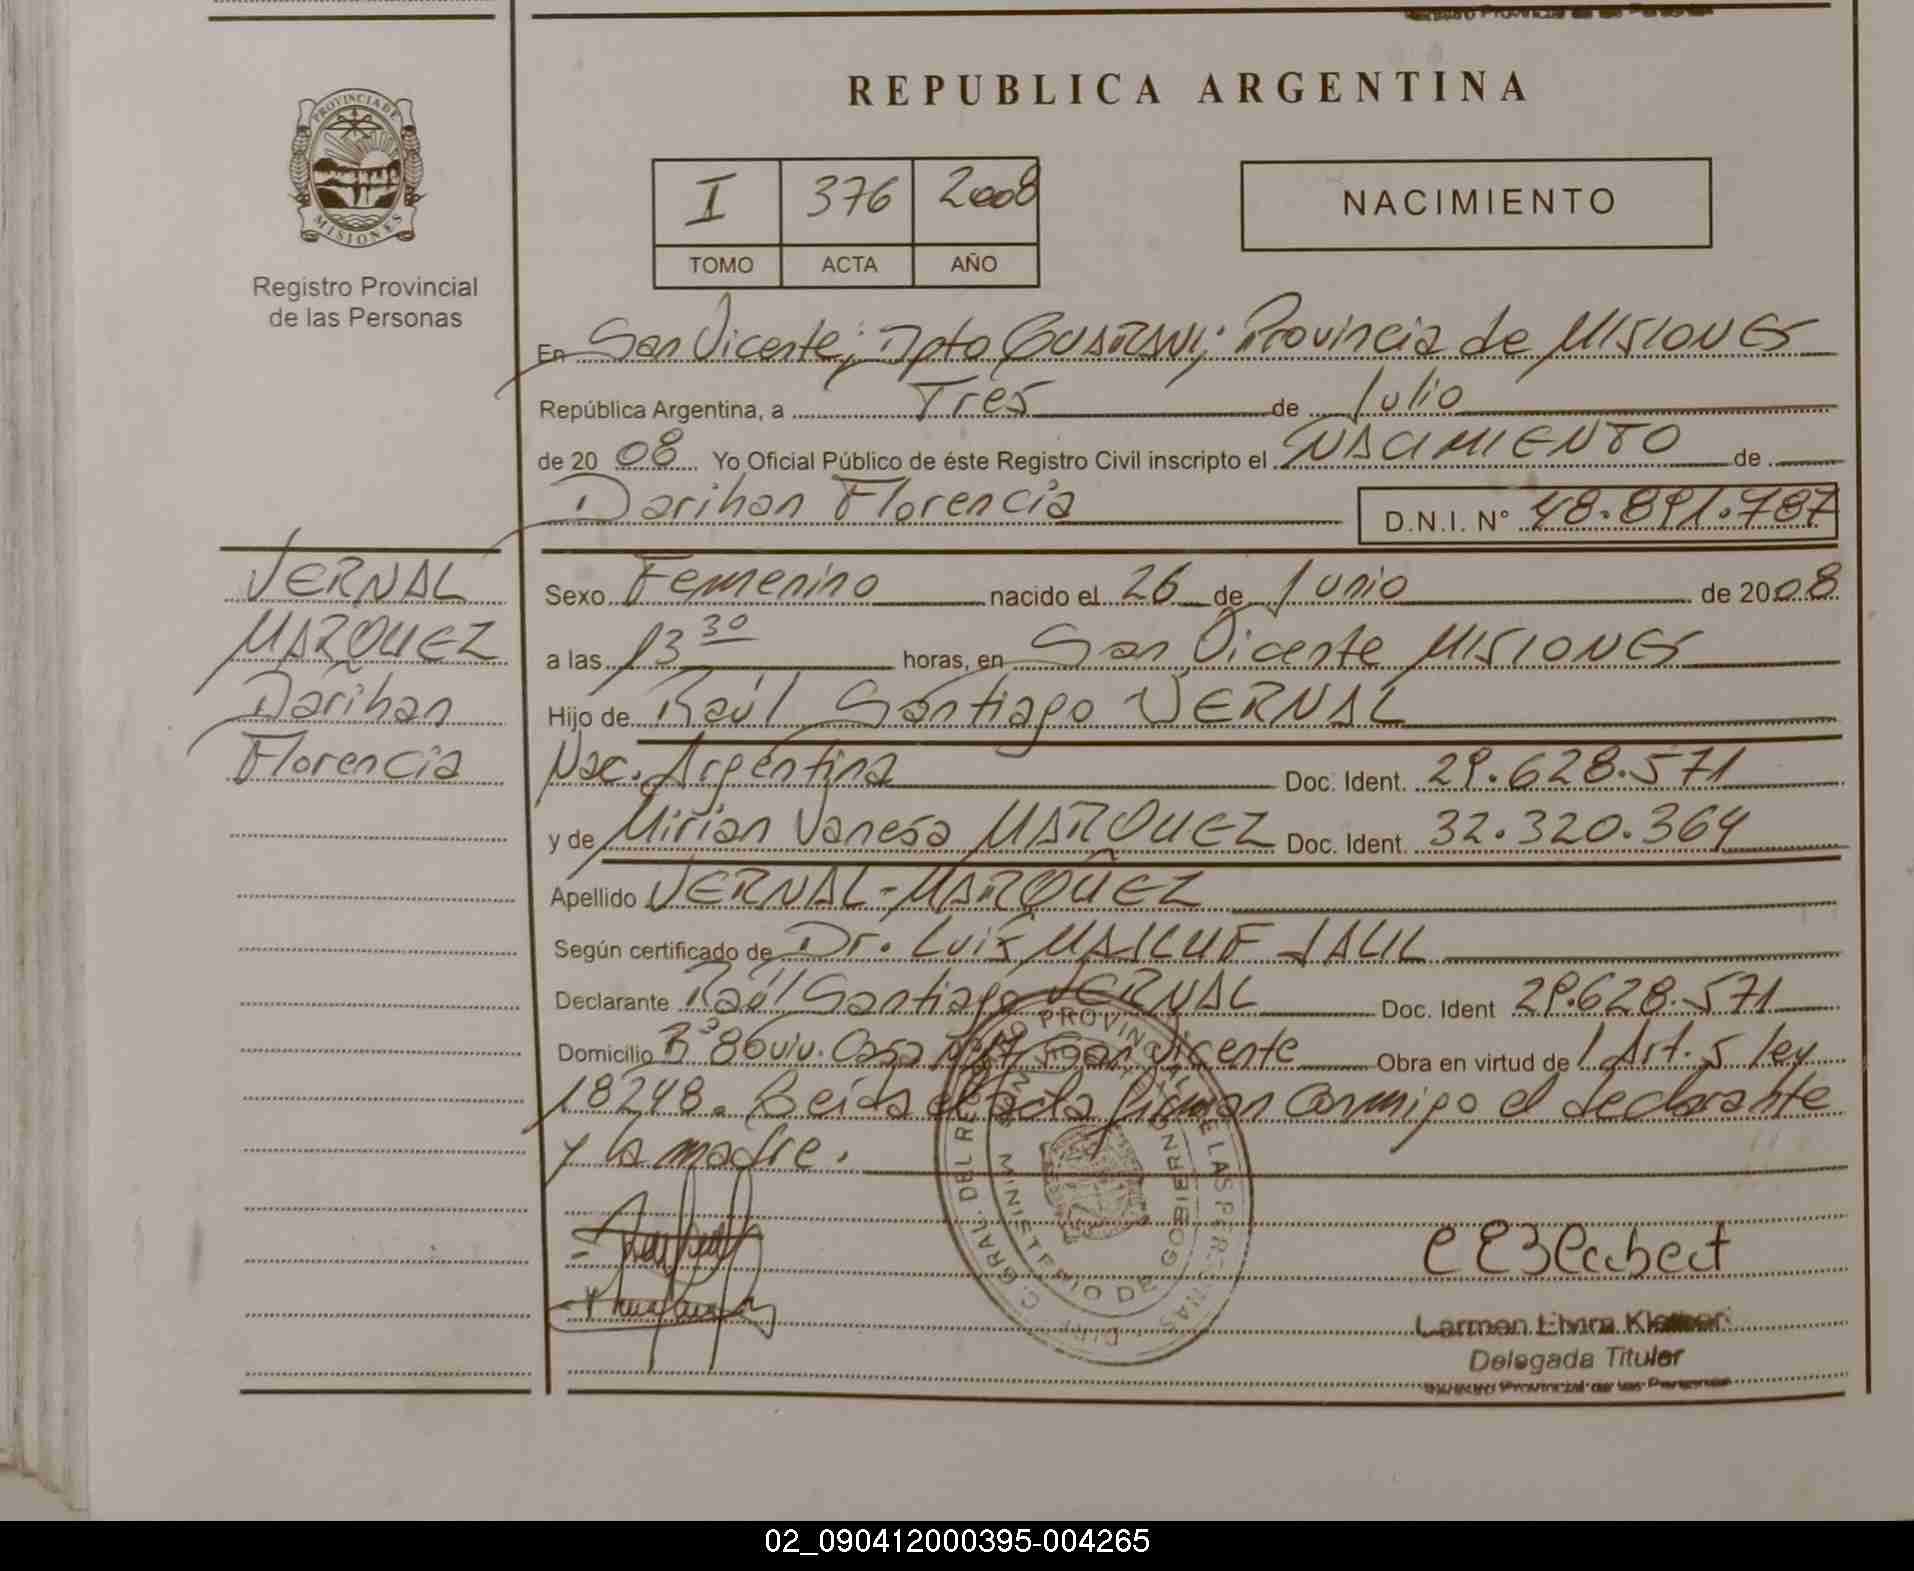 REPUBLICA ARGENTINA
PROVINCIA DE
MISIONES
Registro Provincial
de las Personas
I 376 2008
TOMO ACTA AÑO
NACIMIENTO
En San Vicente; Dpto GUARANI; Provincia de MISIONES
República Argentina, a Tres de Julio
de 20 08 Yo Oficial Público de éste Registro Civil inscripto el NACIMIENTO de
Darihan Florencia D.N.I. N° 48.891.787
VERNAL
MARQUEZ
Darihan
Florencia
Sexo Femenino nacido el 26 de Junio de 2008
a las 13 30 horas, en San Vicente MISIONES
Hijo de Raúl Santiago VERNAL
Nac. Argentina Doc. Ident. 29.628.571
y de Mirian Vanesa MARQUEZ Doc. Ident. 32.320.364
Apellido VERNAL-MARQUEZ
Según certificado de Dr. Luis MAILUF JALIL
Declarante Raúl Santiago VERNAL Doc. Ident 29.628.571
Domicilio B° 86 viv. Casa San Vicente Obra en virtud de Art. 5 ley
18248. Leída el acta firman conmigo el declarante
y la madre.
PROVINCIAL DE LAS PERSONAS
GRAL. DEL
MINISTERIO DE GOBIERNO
Carmen Elvira
Delegada Titular
Registro Provincial de las Personas
02_090412000395-004265